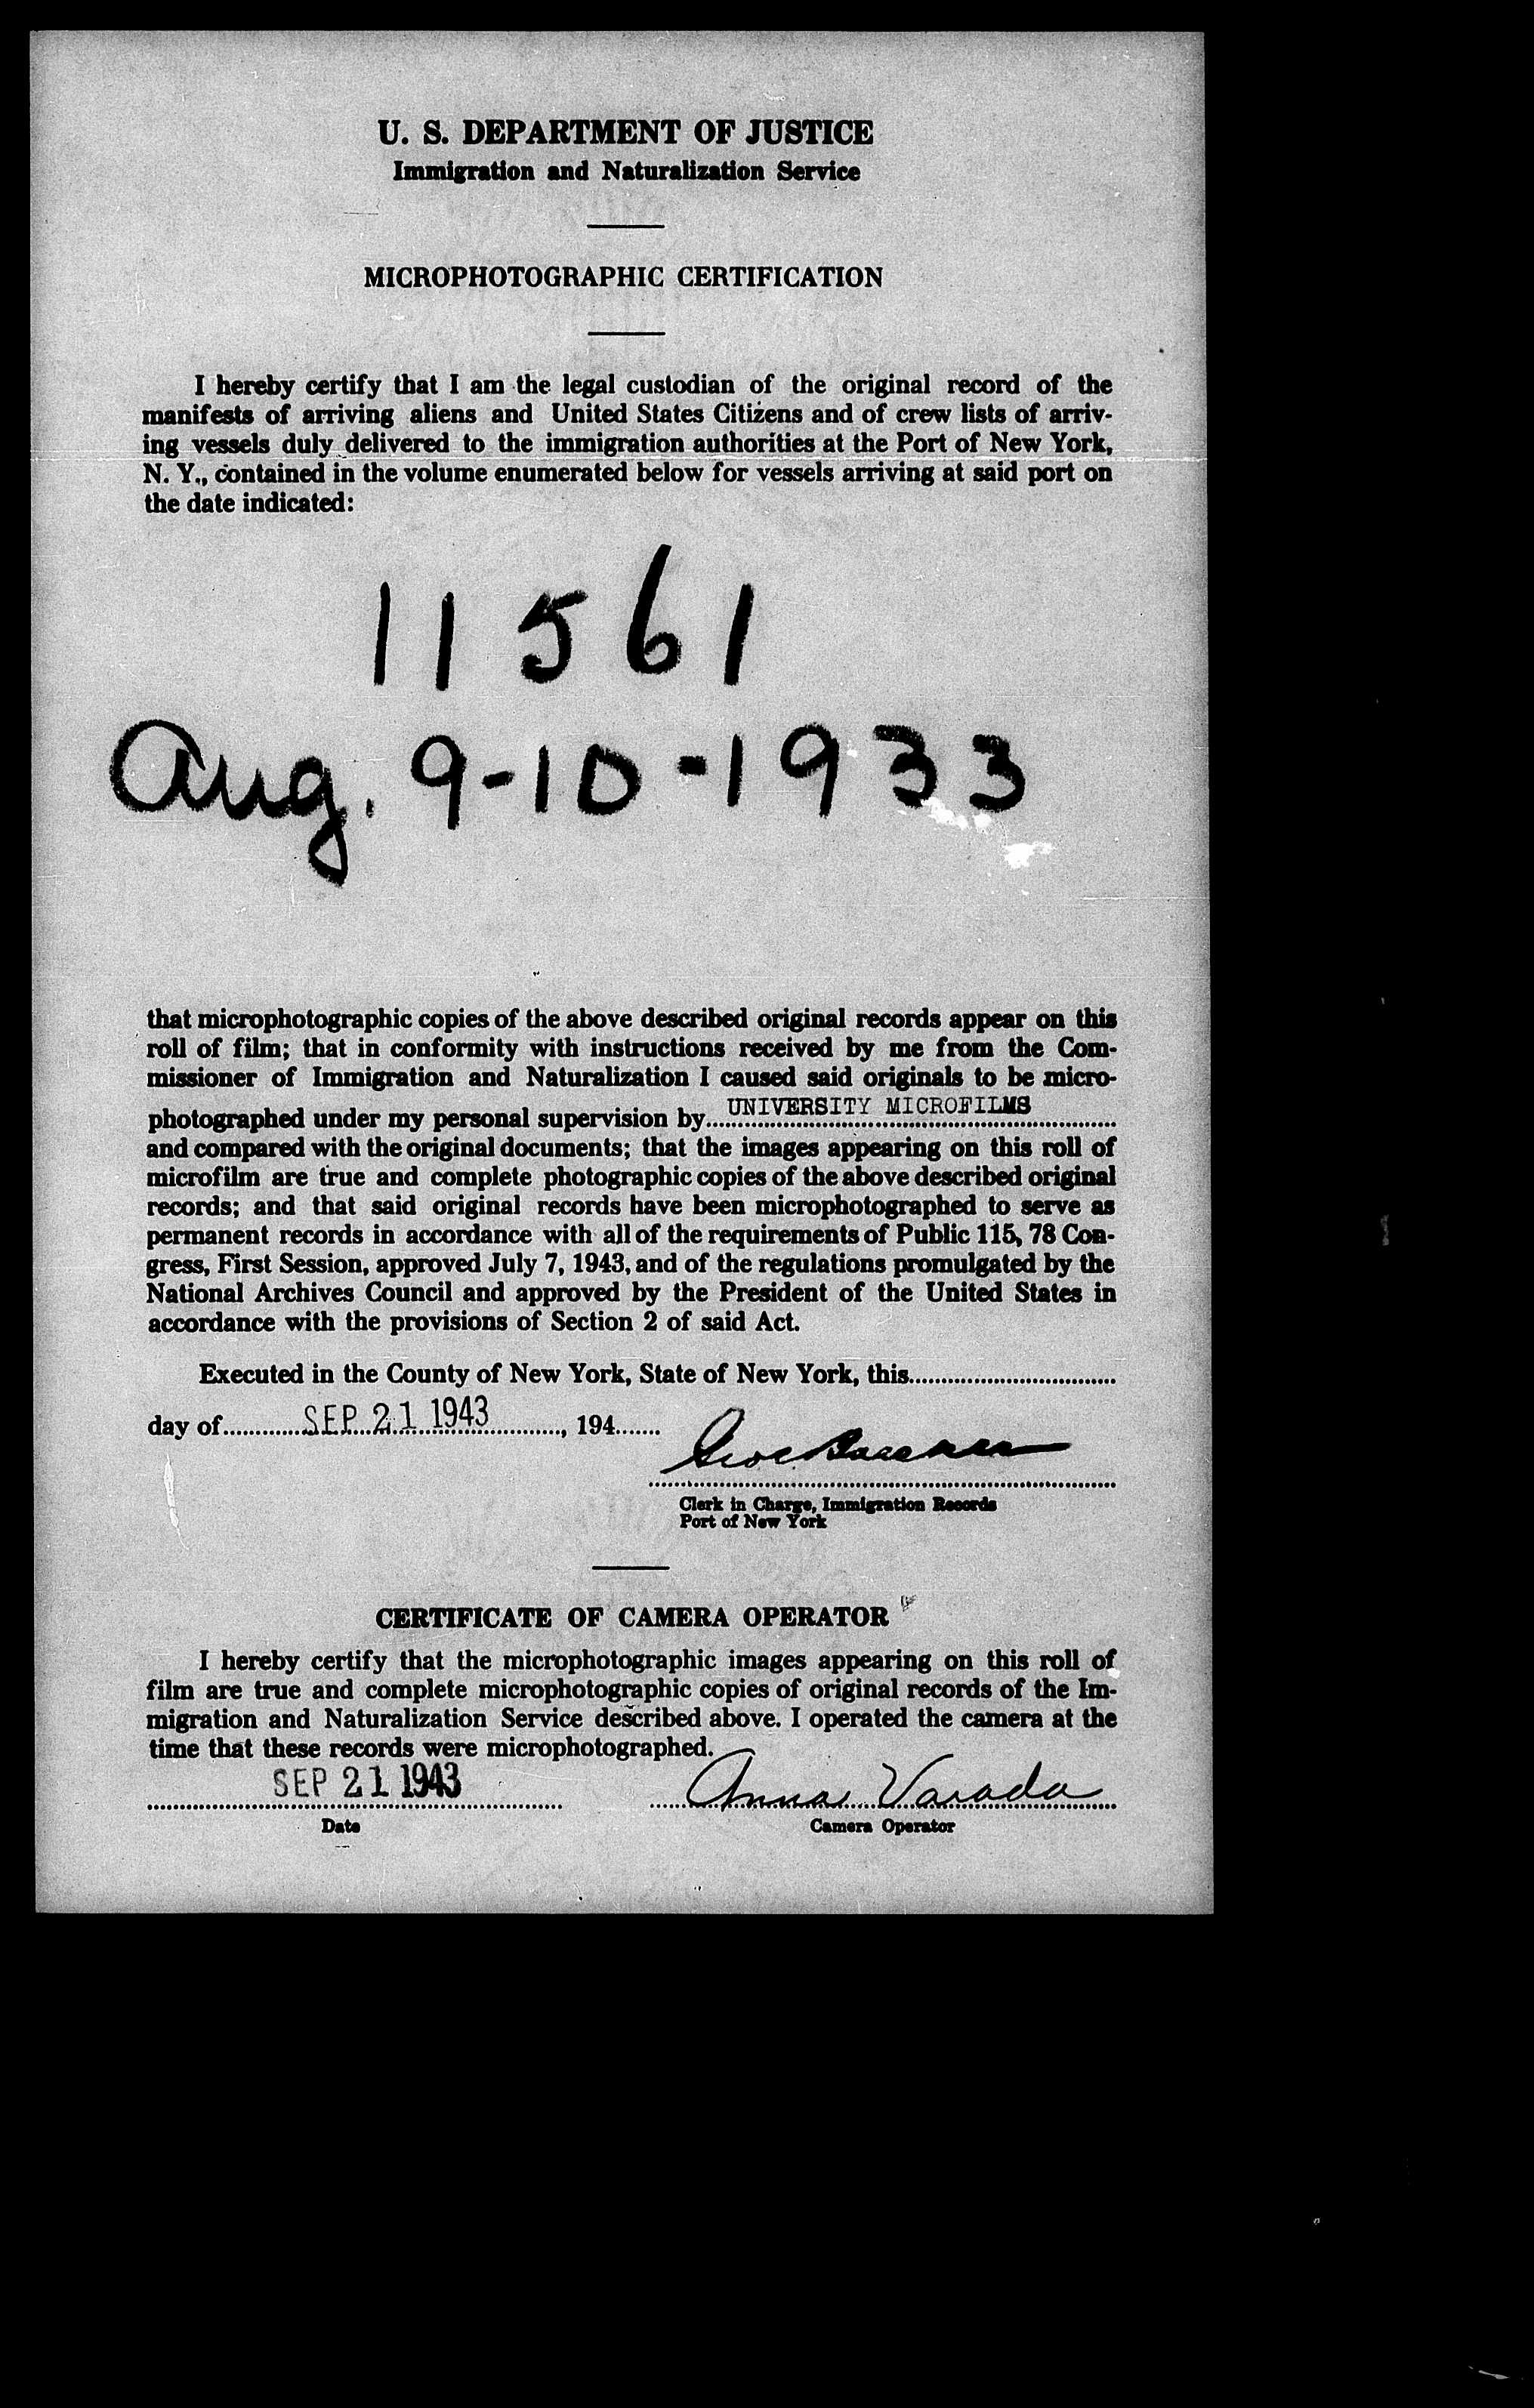 U. S. DEPARTMENT OF JUSTICE
Immigration and Naturalization Service
MICROPHOTOGRAPHIC CERTIFICATION
I hereby certify that I am the legal custodian of the original record of the
manifests of arriving aliens and United States Citizens and of crew lists of arriv-
ing vessels duly delivered to the immigration authorities at the Port of New York,
N. Y., contained in the volume enumerated below for vessels arriving at said port on
the date indicated:
11561
Aug. 9-10-1933
that microphotographic copies of the above described original records appear on this
roll of film; that in conformity with instructions received by me from the Com-
missioner of Immigration and Naturalization I caused said originals to be micro-
photographed under my personal supervision by UNIVERSITY MICROFILMS
and compared with the original documents; that the images appearing on this roll of
microfilm are true and complete photographic copies of the above described original
records; and that said original records have been microphotographed to serve as
permanent records in accordance with all of the requirements of Public 115, 78 Con-
gress, First Session, approved July 7, 1943, and of the regulations promulgated by the
National Archives Council and approved by the President of the United States in
accordance with the provisions of Section 2 of said Act.
Executed in the County of New York, State of New York, this
day of SEP 21 1943, 194
Clerk in Charge, Immigration Records
Port of New York
CERTIFICATE OF CAMERA OPERATOR
I hereby certify that the microphotographic images appearing on this roll of
film are true and complete microphotographic copies of original records of the Im-
migration and Naturalization Service described above. I operated the camera at the
time that these records were microphotographed.
SEP 21 1943 Anna Varada
Date Camera Operator